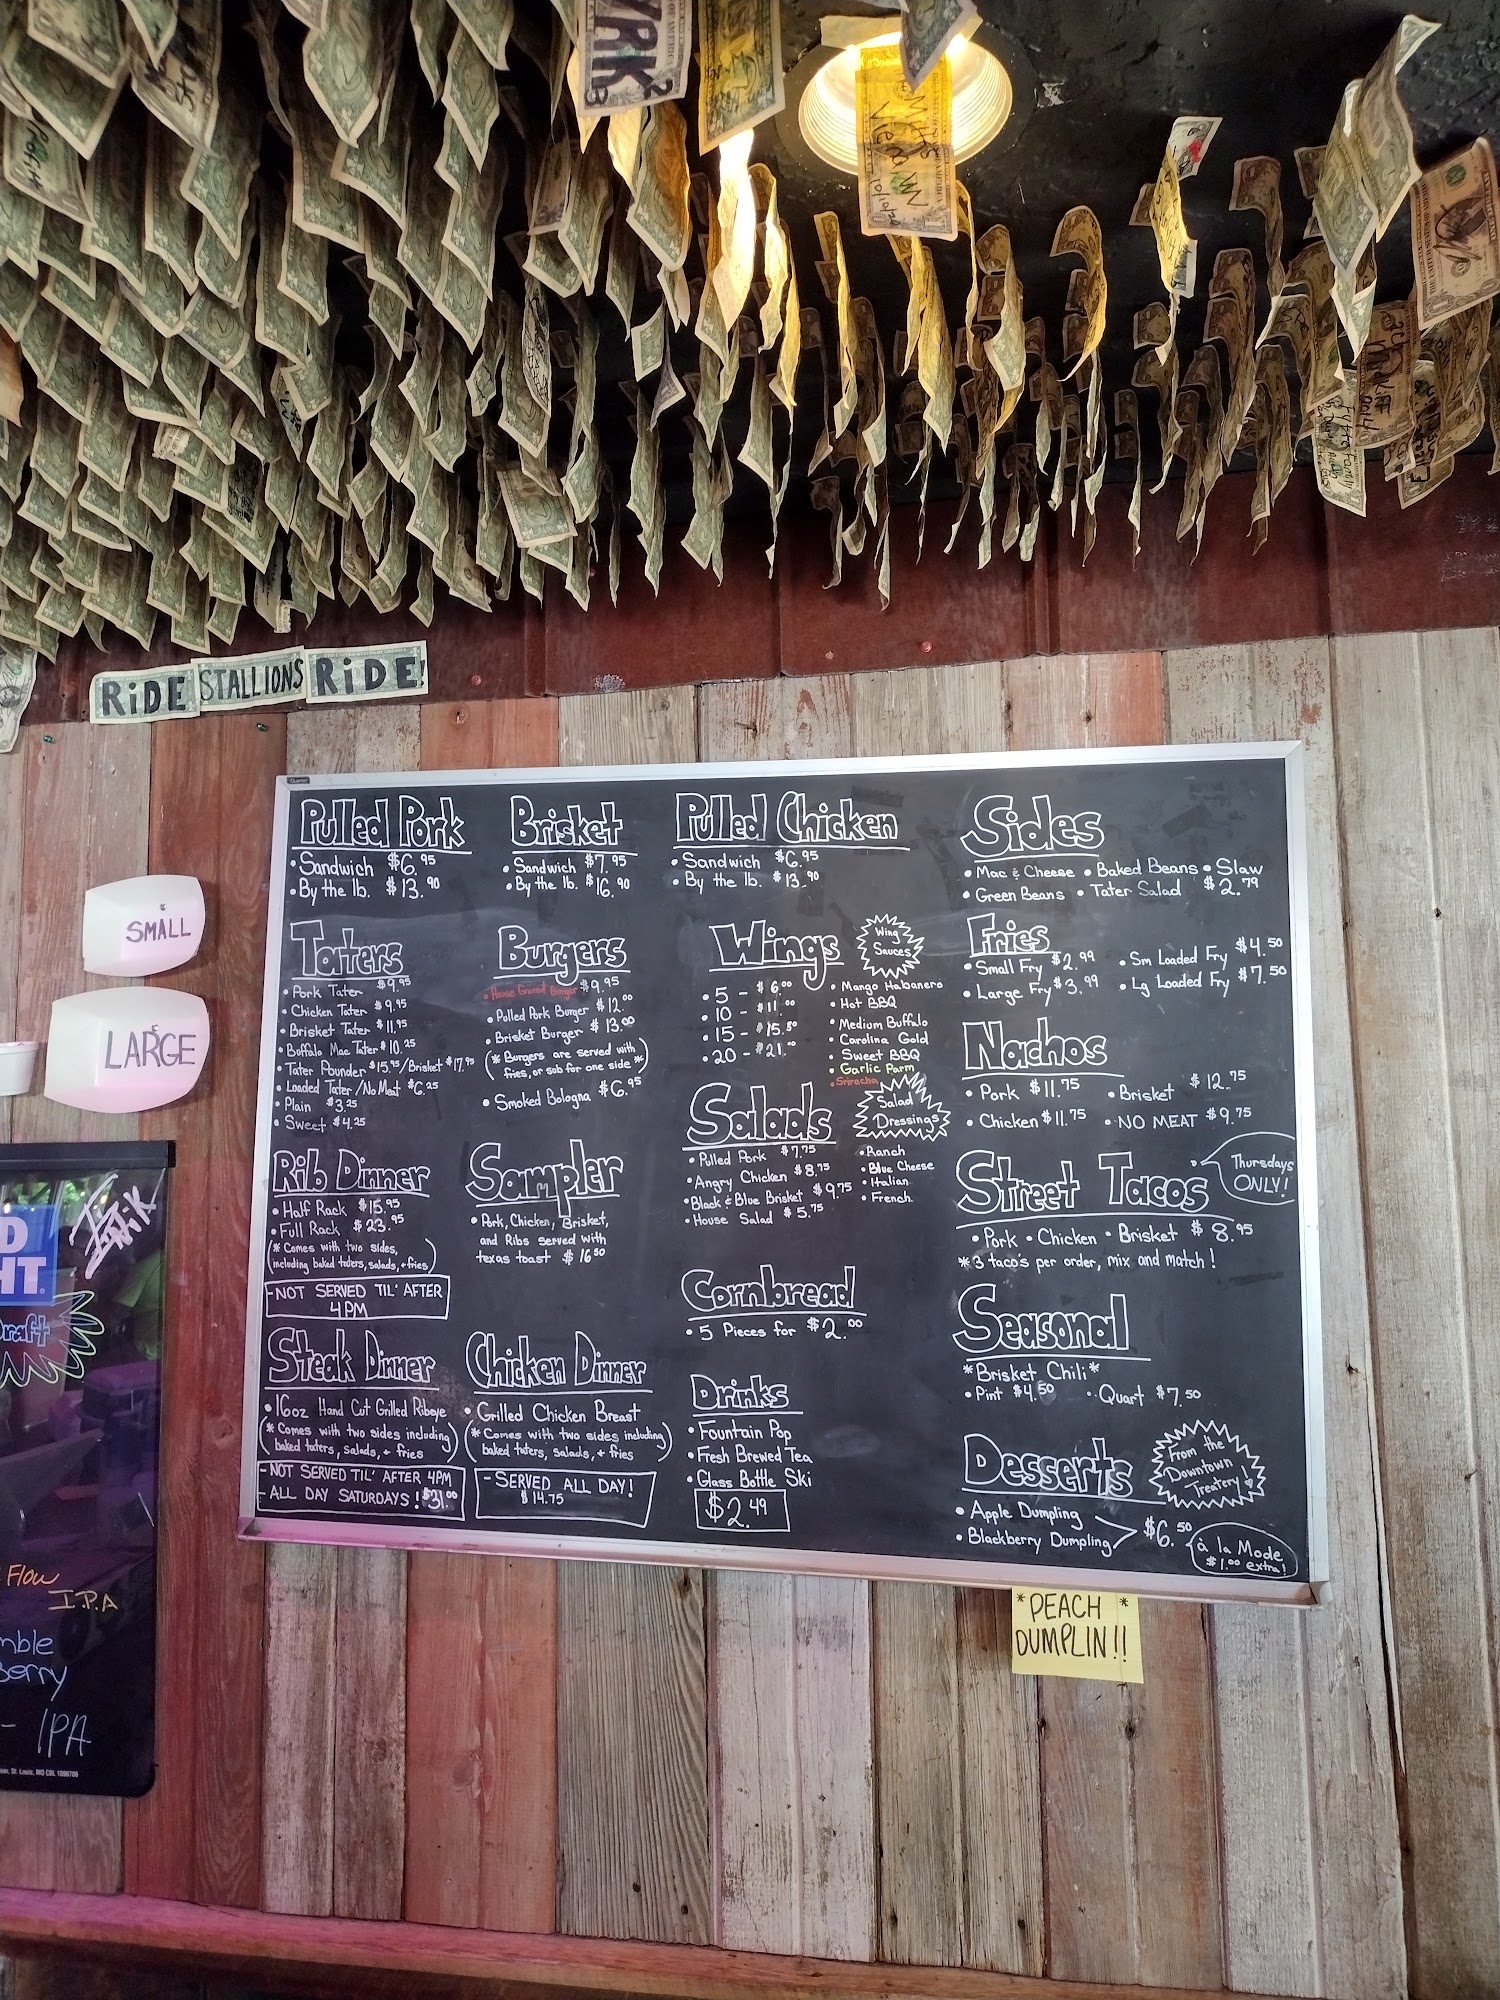 RiDE STALLIONS RiDE!
SMALL
LARGE
Pulled Pork
• Sandwich $6.95
• By the lb. $13.90
Brisket
• Sandwich $7.95
• By the lb. $16.90
Pulled Chicken
• Sandwich $6.95
• By the lb. $13.90
Sides
• Mac & Cheese • Baked Beans • Slaw
• Green Beans • Tater Salad $2.79
Taters
• Pork Tater $9.95
• Chicken Tater $9.95
• Brisket Tater $11.95
• Buffalo Mac Tater $10.25
• Tater Pounder $15.95/Brisket $17.95
• Loaded Tater/No Meat $6.25
• Plain $3.25
• Sweet $4.25
Burgers
• House Ground Burger $9.95
• Pulled Pork Burger $12.00
• Brisket Burger $13.00
(* Burgers are served with
fries, or sub for one side *)
• Smoked Bologna $6.95
Wings
• 5 - $6.00
• 10 - $11.00
• 15 - $15.50
• 20 - $21.00
Wing
Sauces
• Mango Habanero
• Hot BBQ
• Medium Buffalo
• Carolina Gold
• Sweet BBQ
• Garlic Parm
• Sriracha
Fries
• Small Fry $2.99
• Large Fry $3.99
• Sm Loaded Fry $4.50
• Lg Loaded Fry $7.50
Nachos
• Pork $11.75 • Brisket $12.75
• Chicken $11.75 • NO MEAT $9.75
Salads
• Pulled Pork $7.75
• Angry Chicken $8.75
• Black & Blue Brisket $9.75
• House Salad $5.75
Salad
Dressings
• Ranch
• Blue Cheese
• Italian
• French
Rib Dinner
• Half Rack $15.95
• Full Rack $23.95
(* Comes with two sides,
including baked taters, salads, + fries)
- NOT SERVED TIL' AFTER
4PM
Sampler
• Pork, Chicken, Brisket,
and Ribs served with
texas toast $16.50
Street Tacos
Thursdays
ONLY!
• Pork • Chicken • Brisket $8.95
* 3 taco's per order, mix and match!
Cornbread
• 5 Pieces for $2.00
Seasonal
*Brisket Chili*
• Pint $4.50 • Quart $7.50
Steak Dinner
• 16oz Hand Cut Grilled Ribeye
(* Comes with two sides including
baked taters, salads, + fries)
- NOT SERVED TIL' AFTER 4PM
- ALL DAY SATURDAYS! $31.00
Chicken Dinner
• Grilled Chicken Breast
(* Comes with two sides including
baked taters, salads, + fries)
- SERVED ALL DAY!
$14.75
Drinks
• Fountain Pop
• Fresh Brewed Tea
• Glass Bottle Ski
$2.49
Desserts
From the
Downtown
Treatery!
• Apple Dumpling
• Blackberry Dumpling
$6.50
à la Mode
$1.00 extra!
* PEACH *
DUMPLIN!!
HT.
Draft
Flow
I.P.A
Berry
- IPA